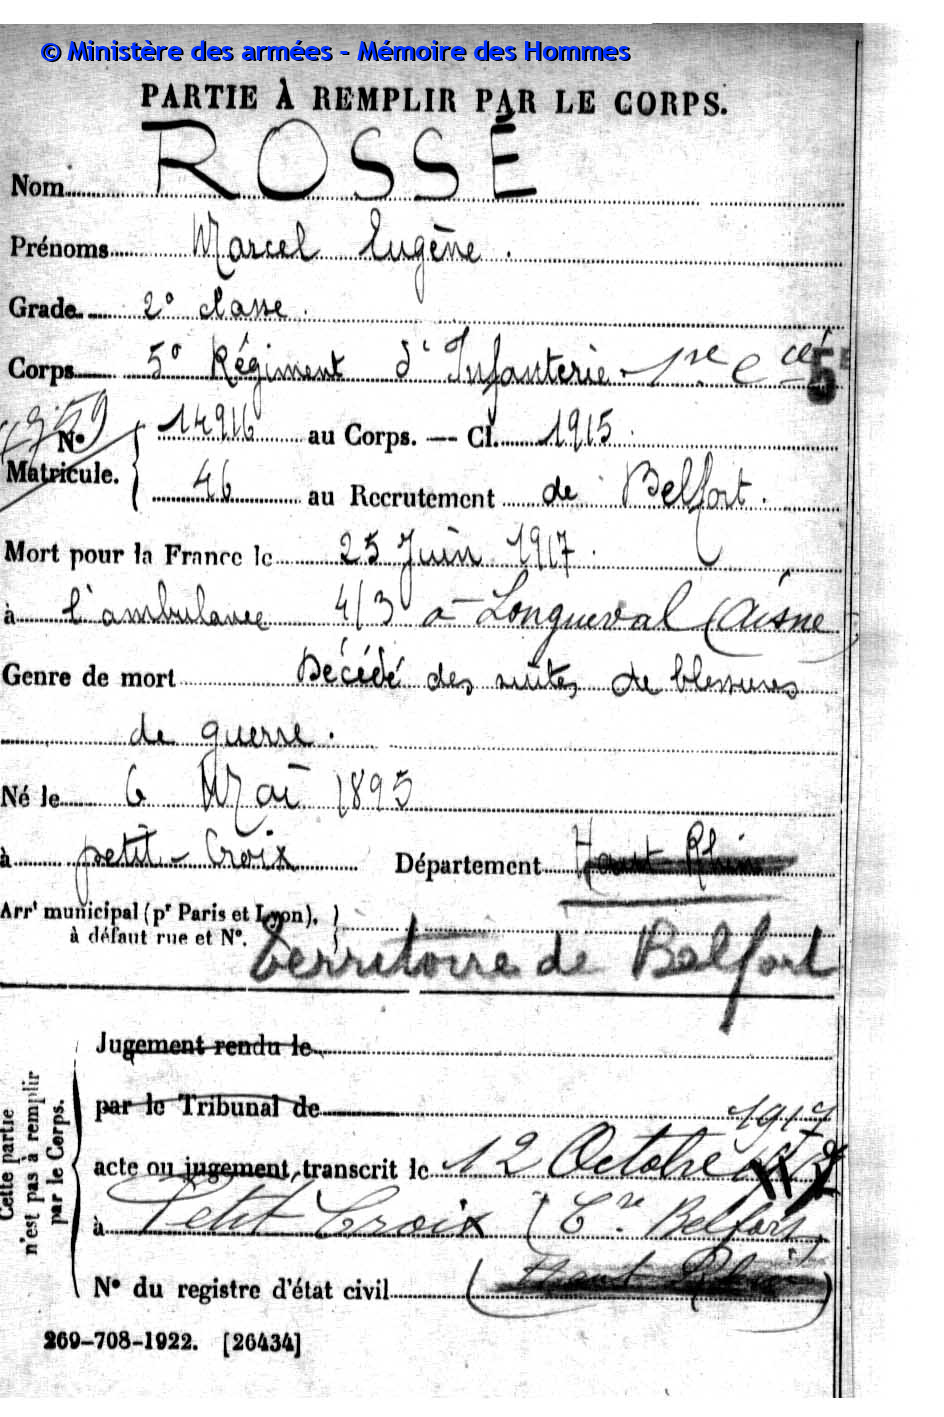 © Ministère des armées - Mémoire des Hommes
PARTIE À REMPLIR PAR LE CORPS.
Nom ROSSÉ
Prénoms Marcel Eugène.
Grade 2e classe.
Corps 5e Régiment d'Infanterie - 1re Cie 5
N° 14916 au Corps. — Cl. 1915.
Matricule. 46 au Recrutement de Belfort.
Mort pour la France le 25 Juin 1917.
à l'ambulance 4/3 à Longueval (Aisne)
Genre de mort Décédé des suites de blessures
de guerre.
Né le 6 Mai 1895
à petit-Croix Département Haut Rhin
Arrt municipal (pr Paris et Lyon),
à défaut rue et N°.
Territoire de Belfort
Cette partie
n'est pas à remplir
par le Corps.
Jugement rendu le
par le Tribunal de
1917
acte ou jugement transcrit le 12 Octobre
à Petit Croix (Tre Belfort)
N° du registre d'état civil (Haut Rhin)
269-708-1922. [26434]